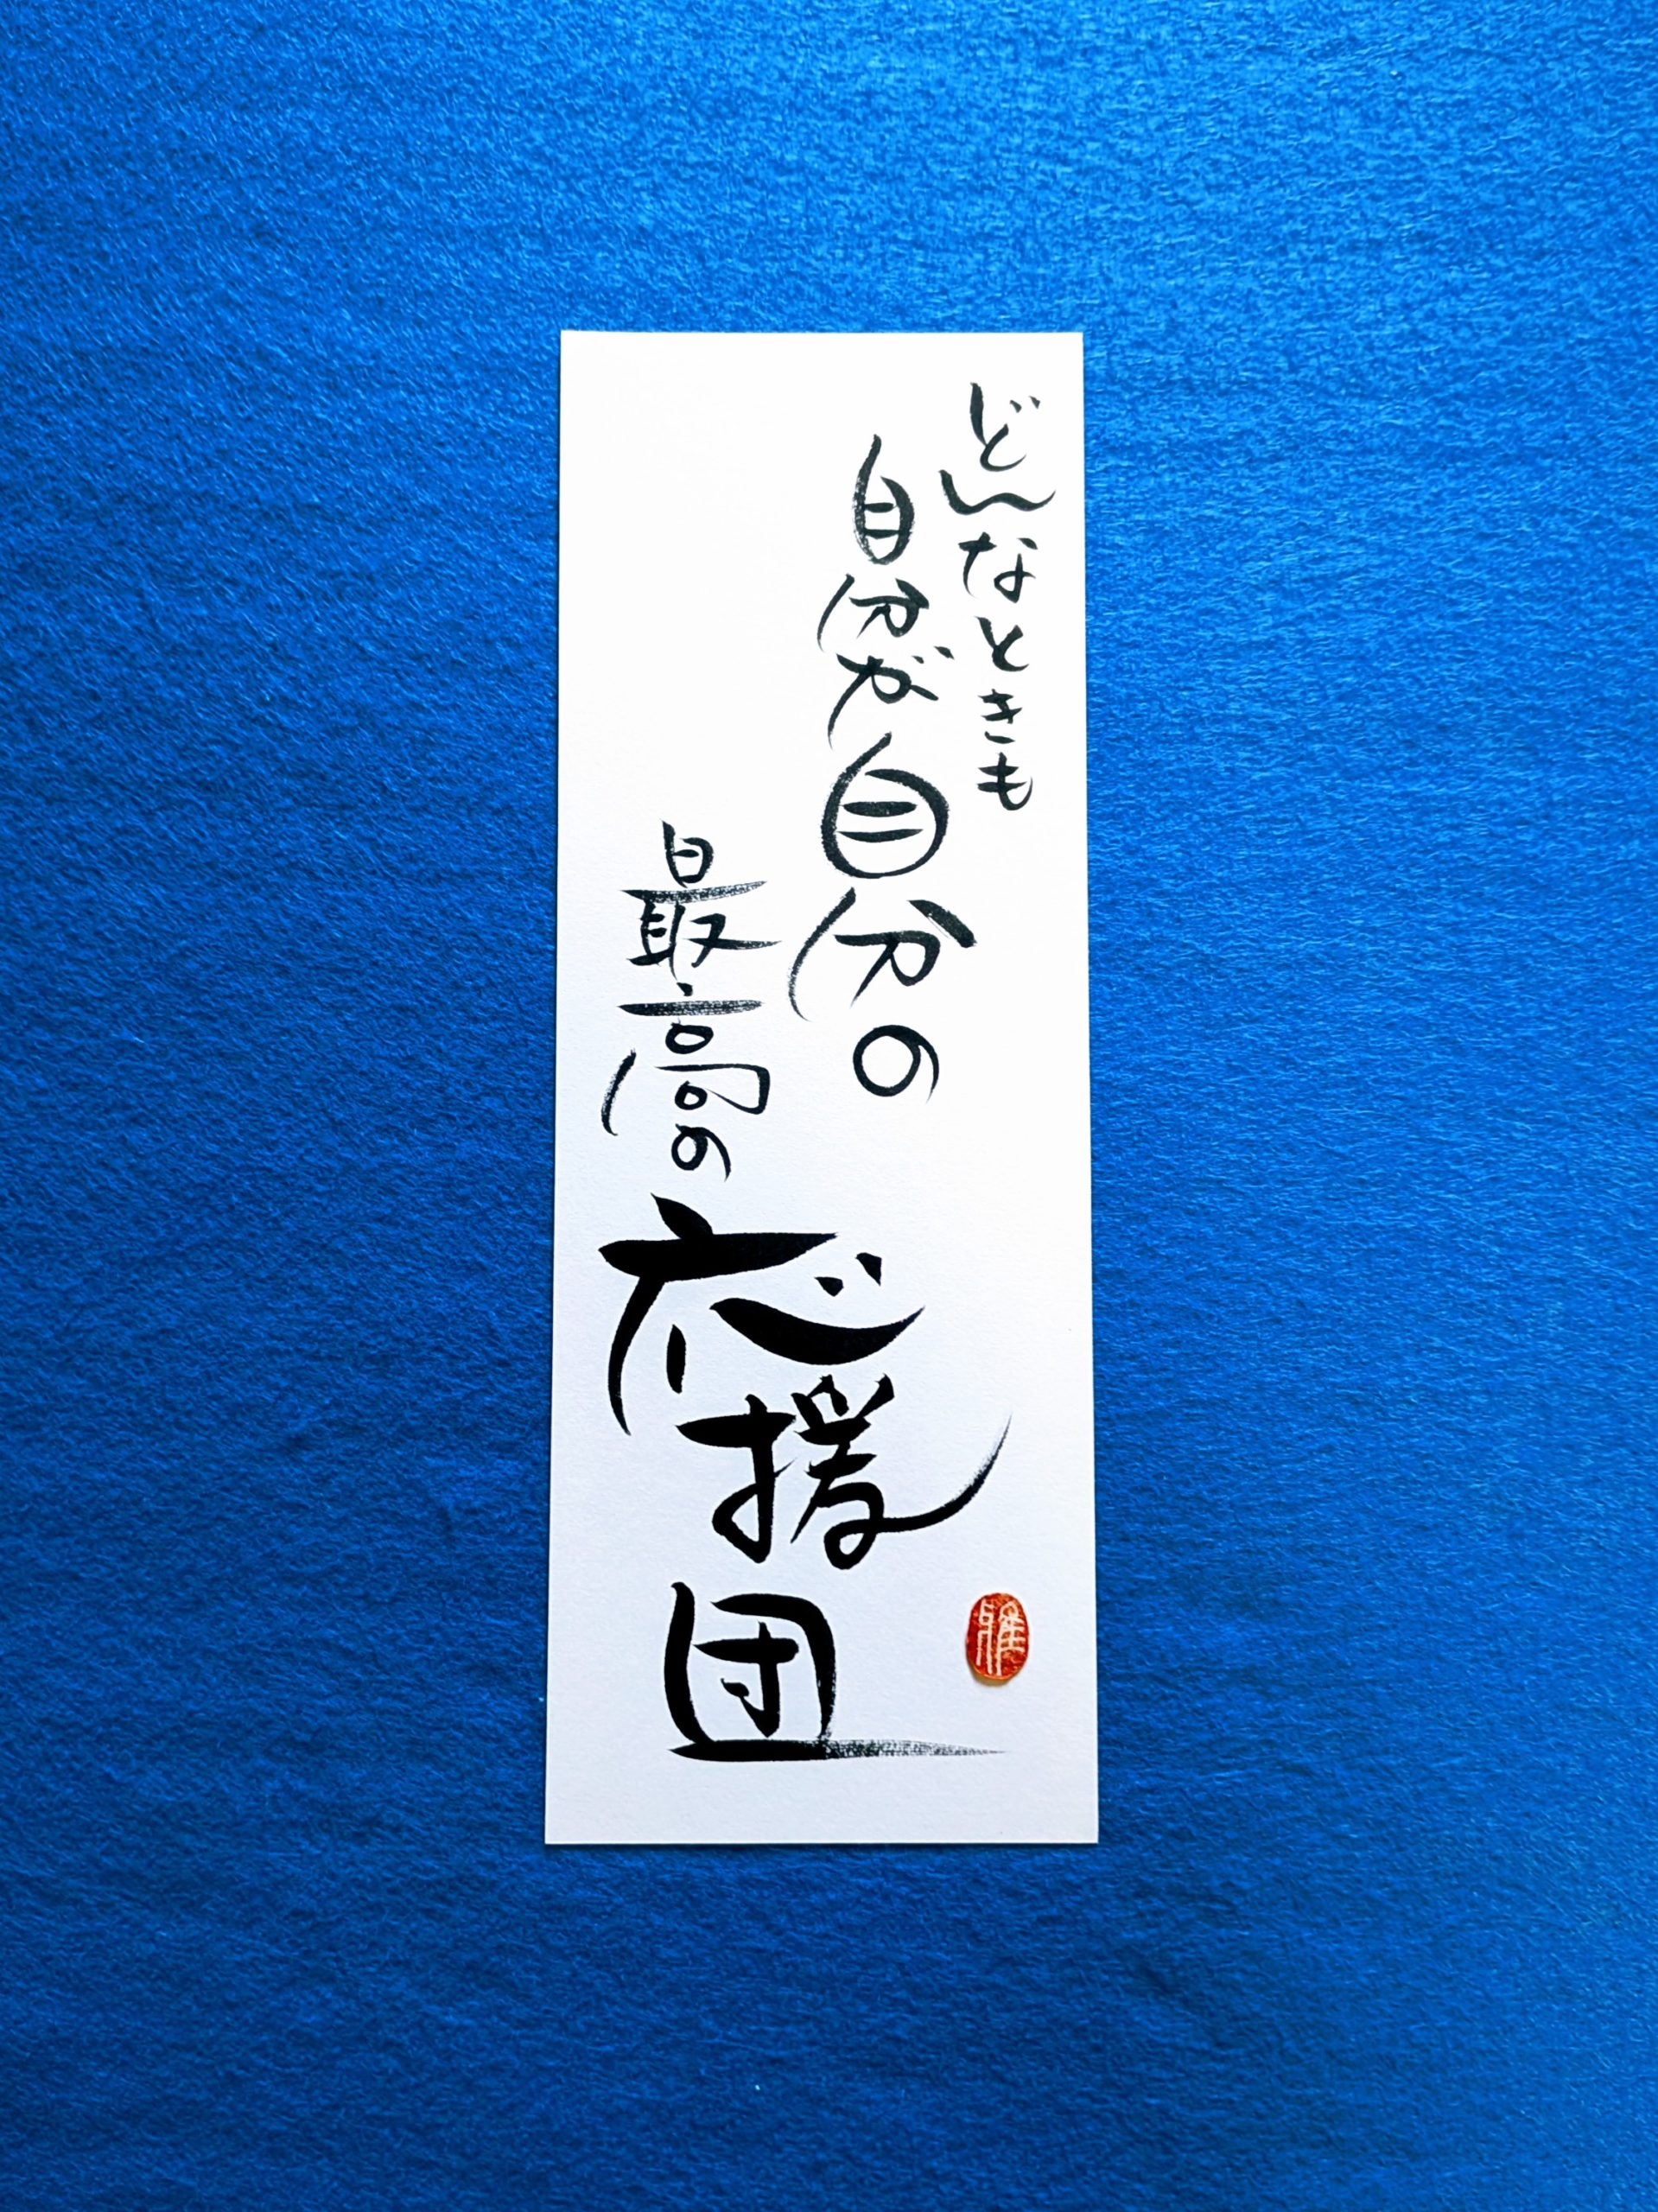 どんなときも
自分が自分の
最高の応援団
雅